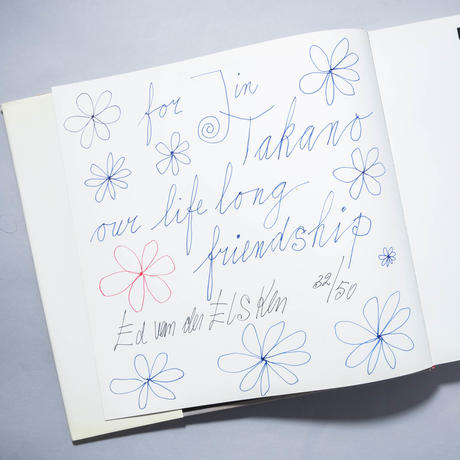 for Jin
Takano
our life long
friendship
Ed van der ELSKen 32/50